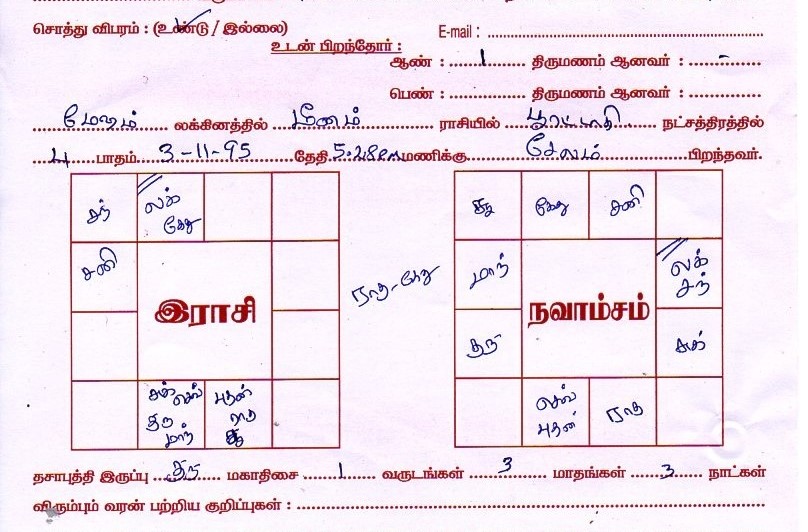 சொத்து விபரம் : (உண்டு / இல்லை)
E-mail :
உடன் பிறந்தோர் :
ஆண் : 1 திருமணம் ஆனவர் : -
பெண் : திருமணம் ஆனவர் :
மேஷம் லக்கினத்தில் மீனம் ராசியில் பூரட்டாதி நட்சத்திரத்தில்
4 பாதம் 3-11-95 தேதி 5.28 PM மணிக்கு சேலம் பிறந்தவர்.
சந் லக் கேது
சனி
இராசி
சுக் செவ் குரு மாந்
புதன் ராகு சூ
ராகு-கேது
சூ கேது சனி
மாந் லக் சந்
நவாம்சம்
குரு சுக்
செவ் புதன் ராகு
தசாபுத்தி இருப்பு குரு மகாதிசை 1 வருடங்கள் 3 மாதங்கள் 3 நாட்கள்
விரும்பும் வரன் பற்றிய குறிப்புகள் :